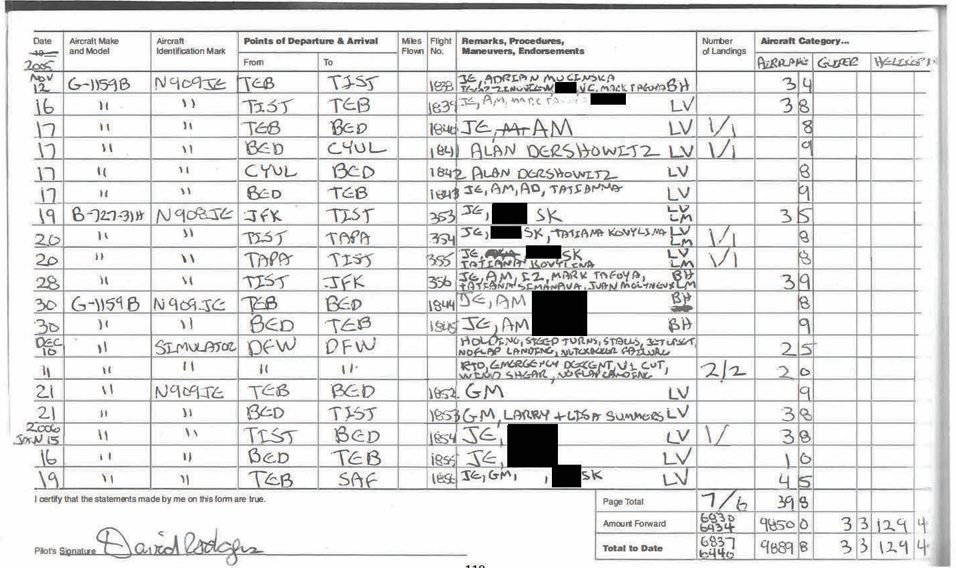 Date 19 Aircraft Make and Model Aircraft Identification Mark Points of Departure & Arrival From To Miles Flown Flight No. Remarks, Procedures, Maneuvers, Endorsements Number of Landings Aircraft Category...
2005 AIRPLANE GLIDER
NOV 12 G-1159B N909JE TEB TIST 1838 JE, ADRIAN MUCINSKA MARK TAFOYA BH 3 4
16 " " TIST TEB 1839 JE, AM, MARK LV 3 8
17 " " TEB BED 1840 JE, AM LV 1/1 8
17 " " BED CYUL 1841 ALAN DERSHOWITZ LV 1/1 9
17 " " CYUL BED 1842 ALAN DERSHOWITZ LV 8
17 " " BED TEB 1843 JE, AM, AD, TATIANNA LV 9
19 B-727-31H N908JE JFK TIST 353 JE, SK LV LM 3 5
20 " " TIST TAPA 354 JE, SK, TATIANA KOVYLINA LV LM 1/1 8
20 " " TAPA TIST 355 JE SK TATIANA KOVYLINA LV LM 1/1 8
28 " " TIST JFK 356 JE, AM, IZ, MARK TAFOYA, BH LM 3 9
30 G-1159B N909JE TEB BED 1844 JE, AM BH 8
30 " " BED TEB 1845 JE, AM BH 9
DEC 10 " SIMULATOR DFW DFW HOLDING, STEEP TURNS, STALLS, NOFLAP LANDING, 2 5
11 " " " " RTO, EMERGENCY DESCENT, V1 CUT, WIND SHEAR, NOFLAP LANDING 2/2 2 0
21 " N909JE TEB BED 1852 GM LV 9
21 " " BED TIST 1853 GM, LARRY + LISA SUMMERS LV 3 8
2006 JAN 15 " " TIST BED 1854 JE, LV 1/ 3 8
16 " " BED TEB 1855 JE, LV 1 0
19 " " TEB SAF 1856 JE, GM, , SK LV 4 5
I certify that the statements made by me on this form are true. Page Total 7/6 39 8
Amount Forward 6830 6434 9850 0 3 3 129 4
Pilot's Signature David Rodgers Total to Date 6837 6440 9889 8 3 3 129 4